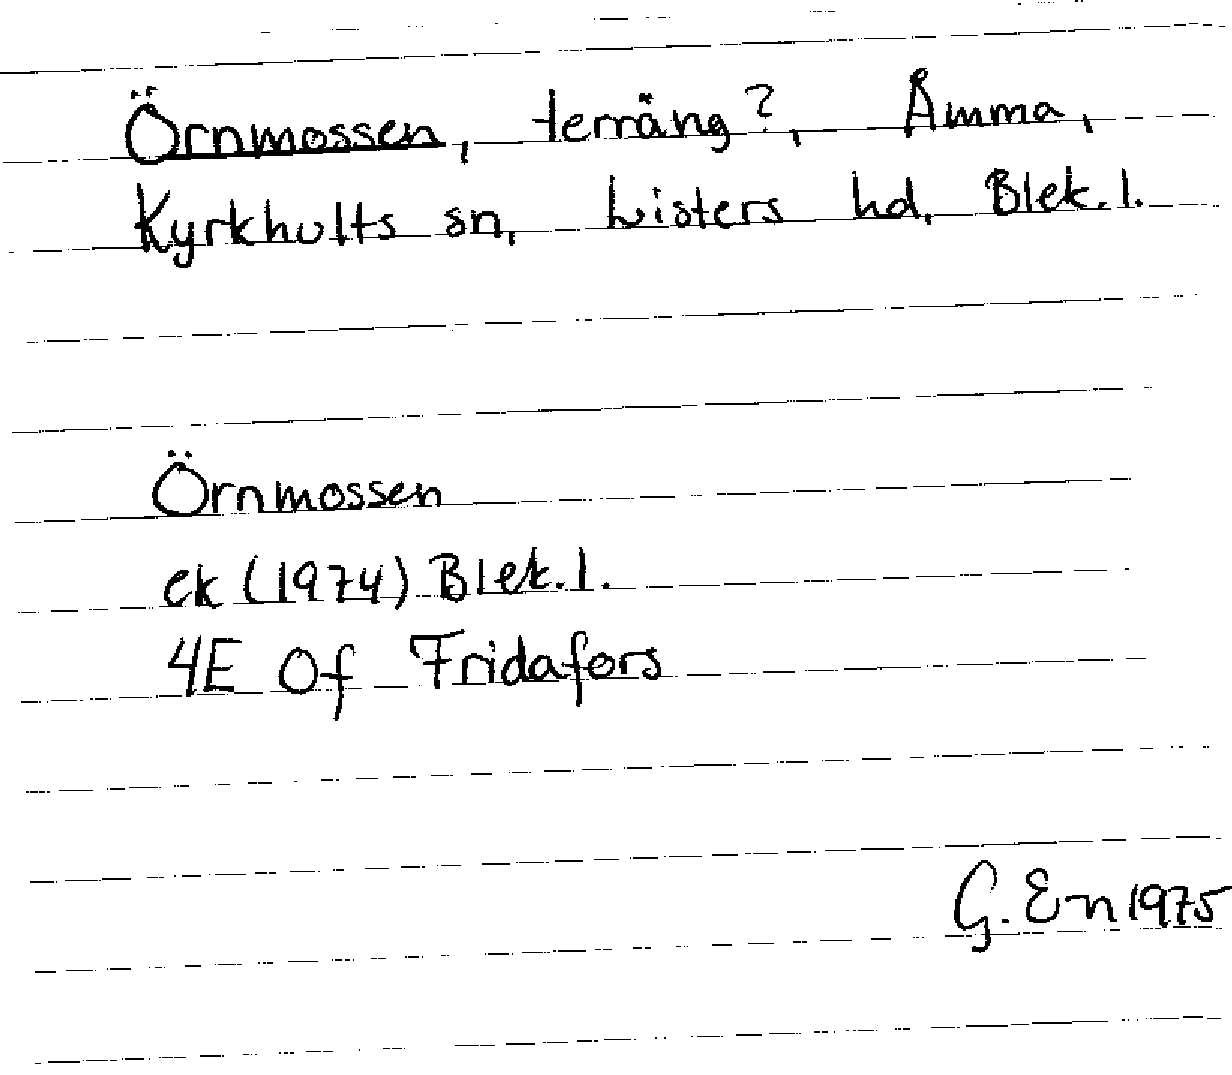 Örnmossen, terräng?, Åmma,
Kyrkhults sn, Listers hd, Blek.l.
Örnmossen
ek (1974) Blek.l.
4E Of Fridafors
G. En 1975